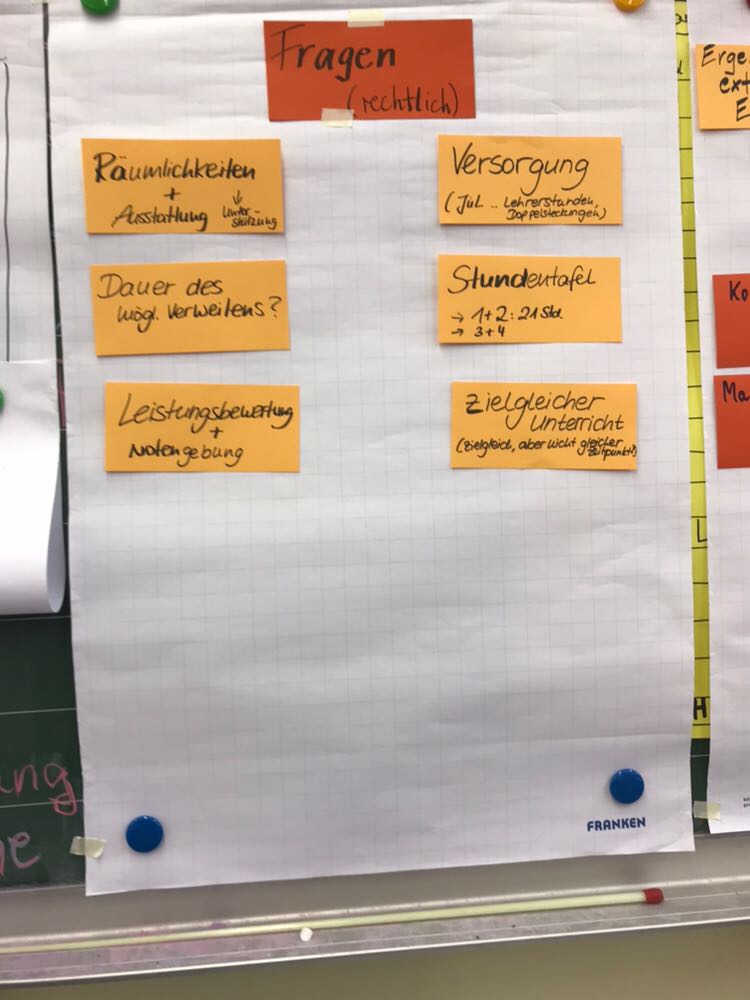 Fragen
(rechtlich)
Räumlichkeiten
+
Ausstattung
↓
Unter-
stützung
Dauer des
mögl. Verweilens?
Leistungsbewertung
+
Notengebung
Versorgung
(JüL .. Lehrerstunden,
Doppelsteckungen)
Stundentafel
→ 1+2: 21 Std.
→ 3+4
Zielgleicher
Unterricht
(zielgleich, aber nicht gleicher
Zeitpunkt!)
FRANKEN
Erge
ext
E
Ko
Ma
L
H
ung
he